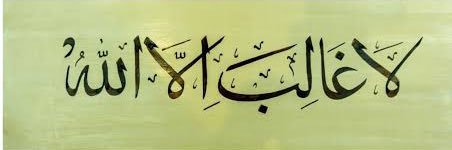 لَا غَالِبَ اِلَّا اللهُ